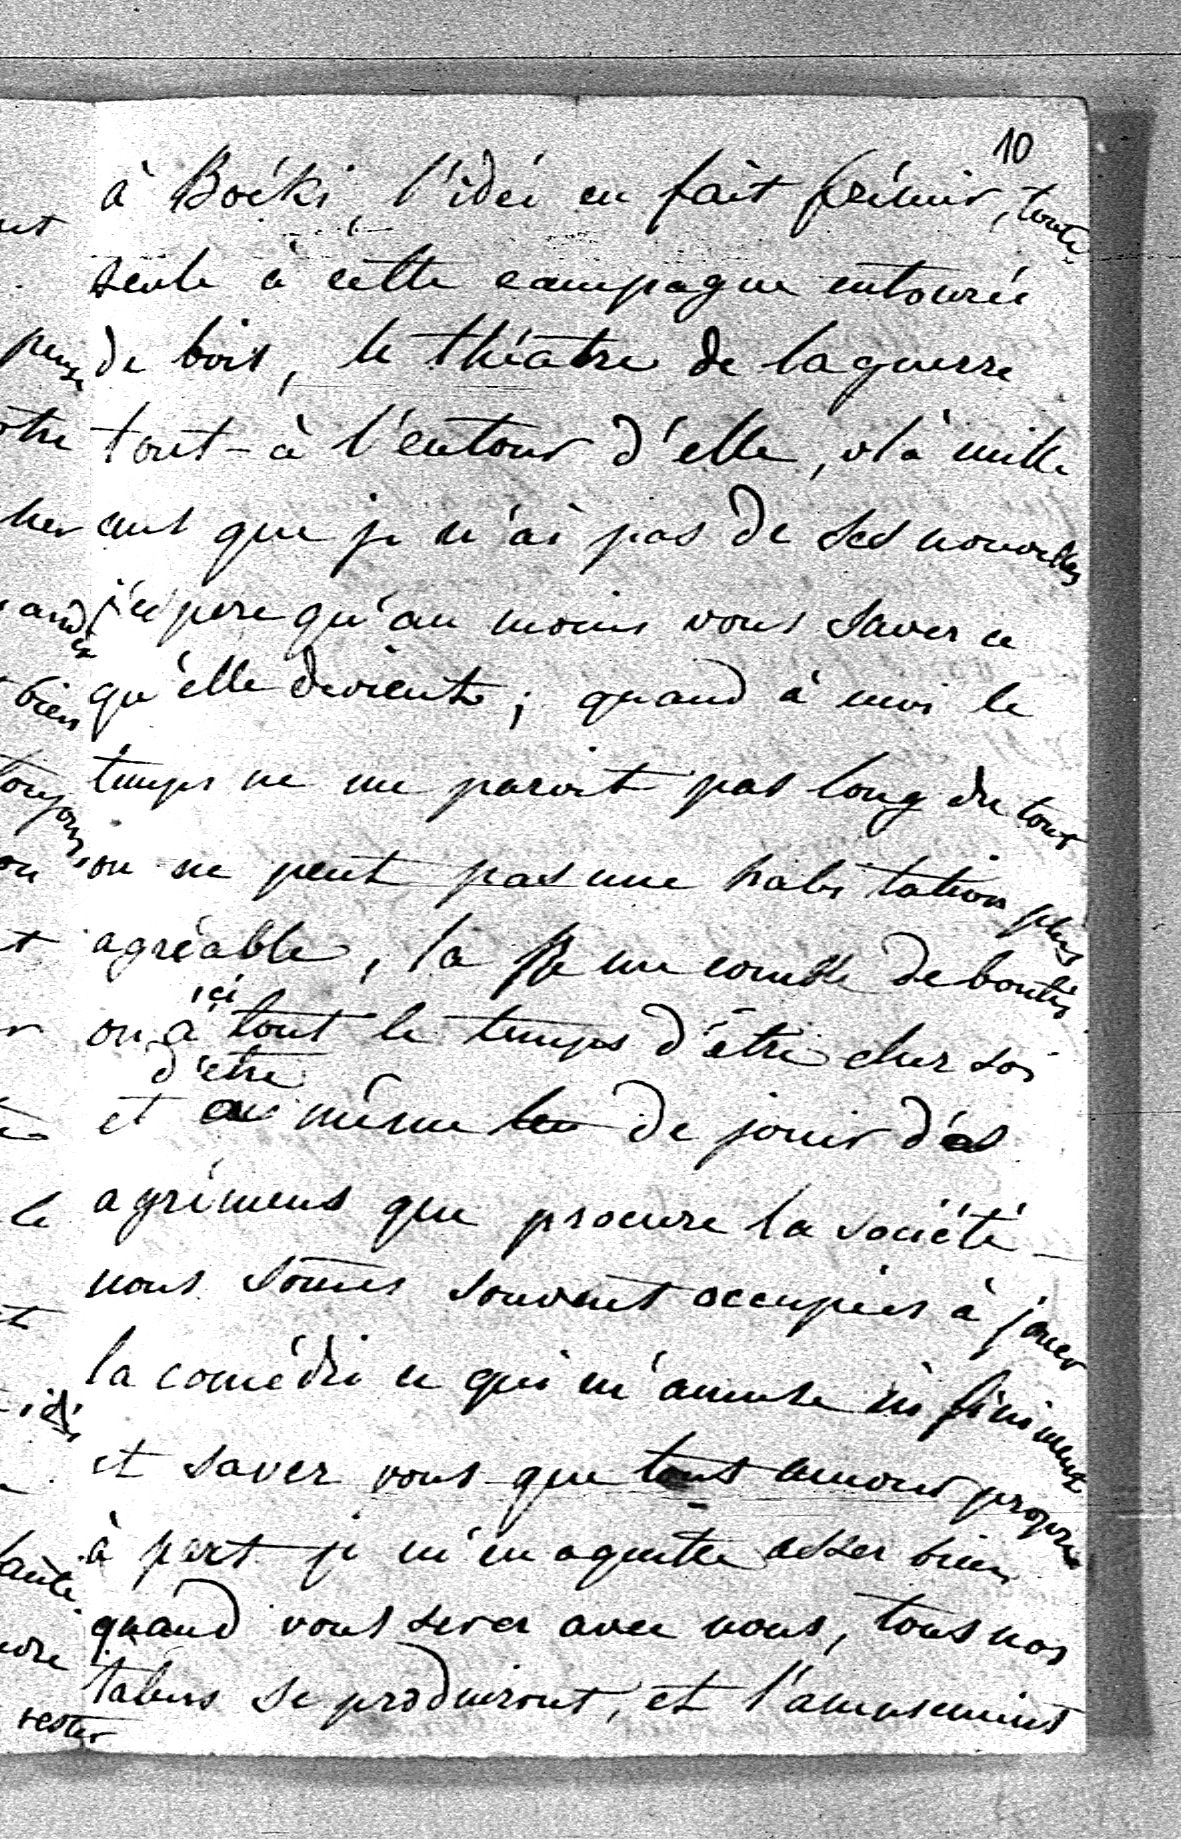 10
à Boéki, l'idée en fait frémir, toute
seule à cette campagne entourée
de bois, le théatre de la guerre
tout-à l'entour d'elle, v'là mille
ans que je n'ai pas de ses nouvelles
j'éspere qu'au moins vous saver ce
qu'elle devient; quand à moi le
temps ne me paroit pas long du tout
on ne peut pas une habitation plus
agréable, la me comble de bontés,
on a ici tout le temps d'être cher soi
et d'être même de jouir des
agrémens que procure la société -
nous somes souvent occupées à jouer
la comédie ce qui m'amuse infiniment
et saver vous que tout amour propre
à part je m'en aquitte asser bien
quand vous serer avec nous, tous nos
talens se produiront, et l'amusement